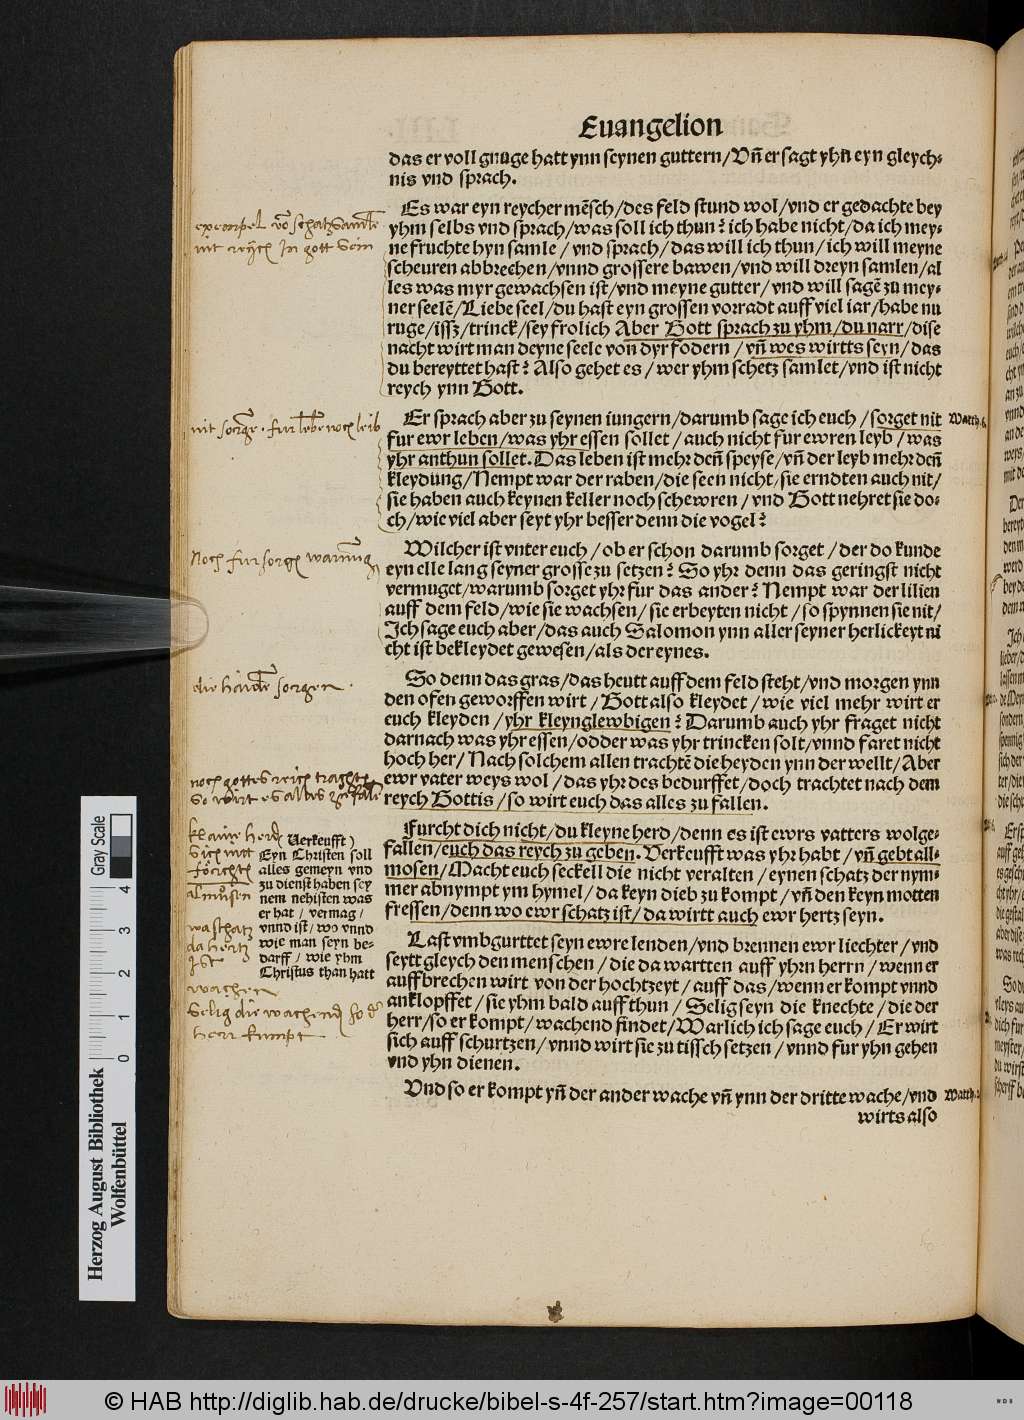 Euangelion
das er voll gnuge hatt ynn seynen guttern/Vñ er sagt yhñ eyn gleych-
nis vnd sprach.
Es war eyn reycher mẽsch/des feld stund wol/vnd er gedachte bey
yhm selbs vnd sprach/was soll ich thun? ich habe nicht/da ich mey-
ne fruchte hyn samle / vnd sprach/das will ich thun/ich will meyne
scheuren abbrechen/vnnd grossere bawen/vnd will dreyn samlen/al
les was myr gewachsen ist/vnd meyne gutter/vnd will sagẽ zu mey-
ner seelẽ/Liebe seel/du hast eyn grossen vorradt auff viel iar/habe nu
ruge/issz/trinck/sey frolich Aber Gott sprach zu yhm/du narr/dise
nacht wirt man deyne seele von dyr fodern /vñ wes wirtts seyn/das
du bereyttet hast? Also gehet es/wer yhm schetz samlet/vnd ist nicht
reych ynn Gott.
exempel
nit reych In gott sein
Er sprach aber zu seynen iungern/darumb sage ich euch/sorget nit
fur ewr leben/was yhr essen sollet/auch nicht fur ewren leyb/was
yhr anthun sollet.Das leben ist mehr deñ speyse/vñ der leyb mehr deñ
kleydung/Nempt war der raben/die seen nicht/sie erndten auch nit/
sie haben auch keynen keller noch schewren/vnd Gott nehret sie do-
ch/wie viel aber seyt yhr besser denn die vogel?
Matth.6.
nit sorge. fur leben noch leib
Wilcher ist vnter euch/ob er schon darumb sorget/der do kunde
eyn elle lang seyner grosse zu setzen? So yhr denn das geringst nicht
vermuget/warumb sorget yhr fur das ander? Nempt war der lilien
auff dem feld/wie sie wachsen/sie erbeyten nicht/so spynnen sie nit/
Ich sage euch aber/das auch Salomon ynn aller seyner herlickeyt ni
cht ist bekleydet gewesen/als der eynes.
Noch fur sorgen warnung
So denn das gras/das heutt auff dem feld steht/vnd morgen ynn
den ofen geworffen wirt/Gott also kleydet/wie viel mehr wirt er
euch kleyden/yhr kleynglewbigen? Darumb auch yhr fraget nicht
darnach was yhr essen/odder was yhr trincken solt/vnnd faret nicht
hoch her/Nach solchem allen trachtẽ die heyden ynn der wellt/Aber
ewr vater weys wol/das yhr des bedurffet/doch trachtet nach dem
reych Gottis/so wirt euch das alles zu fallen.
die haiden sorgen.
noch gottes reich trachten
so wirt es alles zufallen
Furcht dich nicht/du kleyne herd/denn es ist ewrs vatters wolge-
fallen/euch das reych zu geben.Verkeufft was yhr habt/vñ gebt all-
mosen/Macht euch seckell die nicht veralten/eynen schatz der nym-
mer abnympt ym hymel/da keyn dieb zu kompt/vñ den keyn motten
fressen/denn wo ewr schatz ist/da wirtt auch ewr hertz seyn.
klaine herd
sich nitt
förchten
Almůsen
wa schatz
da hertz
Ist
(Verkeufft)
Eyn Christen soll
alles gemeyn vnd
zu dienst haben sey
nem nehisten was
er hat / vermag/
vnnd ist/wo vnnd
wie man seyn be-
darff / wie yhm
Christus than hatt
Last vmbgurttet seyn ewre lenden/vnd brennen ewr liechter/vnd
seytt gleych den menschen/die da wartten auff yhrn herrn/wenn er
auffbrechen wirt von der hochtzeyt/auff das/wenn er kompt vnnd
anklopffet/sie yhm bald auff thun/Selig seyn die knechte/die der
herr/so er kompt/wachend findet/Warlich ich sage euch/Er wirt
sich auff schurtzen/vnnd wirt sie zu tissch setzen/vnnd fur yhn gehen
vnd yhn dienen.
wachen
Selig die wachend so der
herr kumpt
Vnd so er kompt yñ der ander wache vñ ynn der dritte wache/vnd
Matth.
wirts also
Gray Scale
4
3
2
1
0
Herzog August Bibliothek
Wolfenbüttel
© HAB http://diglib.hab.de/drucke/bibel-s-4f-257/start.htm?image=00118